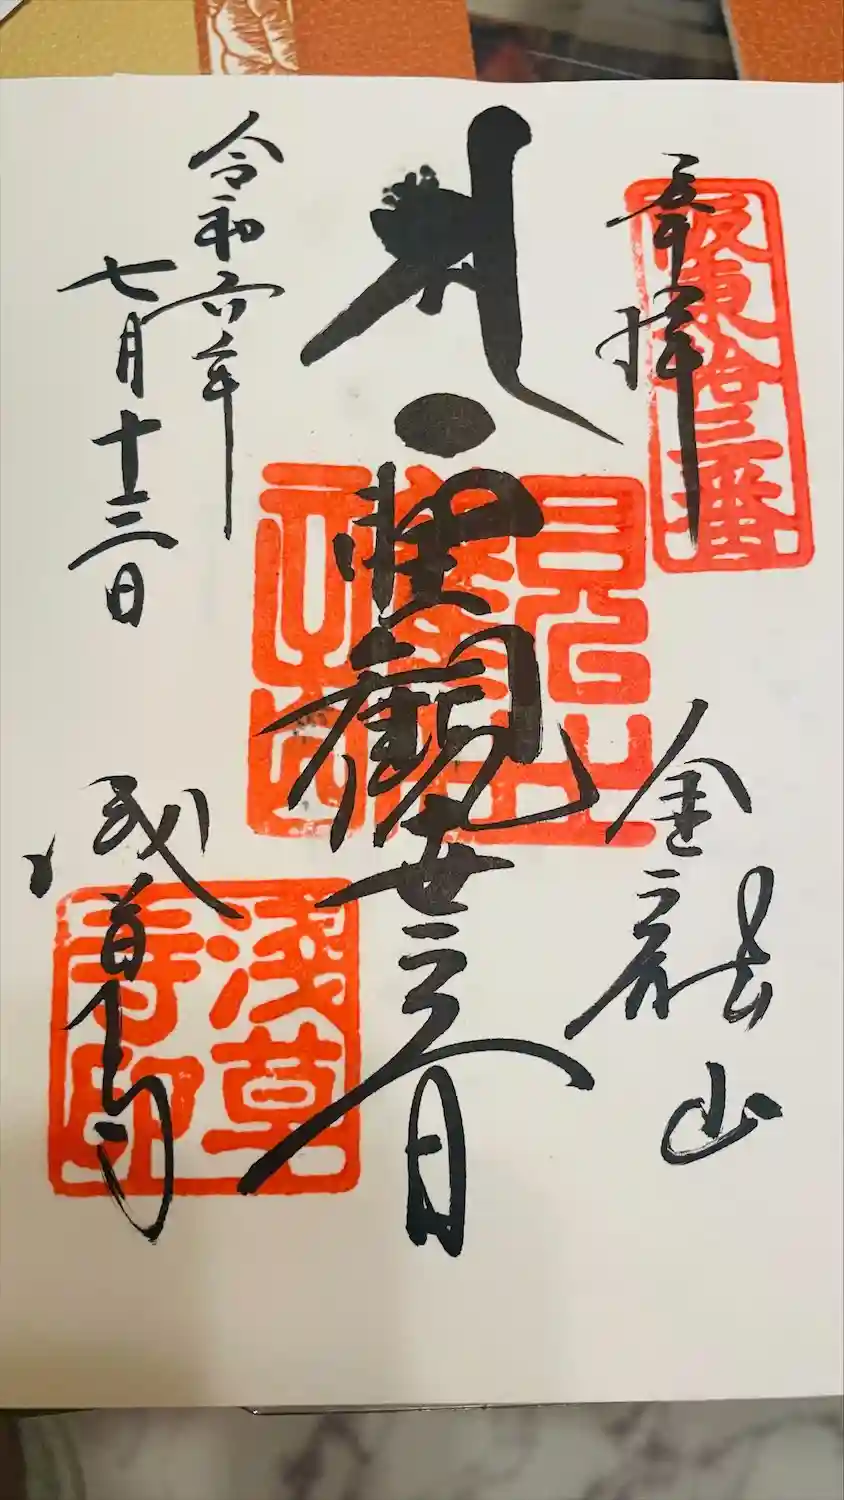 奉拝
坂東拾三番
金龍山
聖観世音
令和六年
七月十三日
浅草寺
浅草
寺印